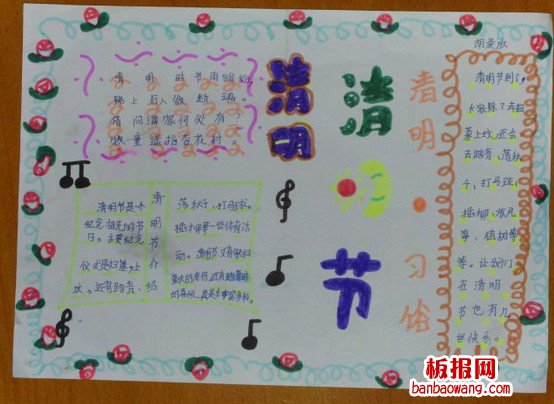 清明时节雨纷纷
路上行人欲断魂。
借问酒家何处有？
牧童遥指杏花村。
清明
清明节
清明·习俗
清明节到了，
大家除了去扫
墓上坟，还会
去踏青，荡秋
千，打马球，
插柳，放风
筝，植树等
等。让我们
在清明
节也有几
丝快乐。
清明节是个
纪念祖先的节
日。主要纪念
仪式是扫墓，上
坟。还有踏青，
清明节介绍
荡秋千，打马球，
插柳等一些体育活
动。清明节
板报网
banbaowang.com